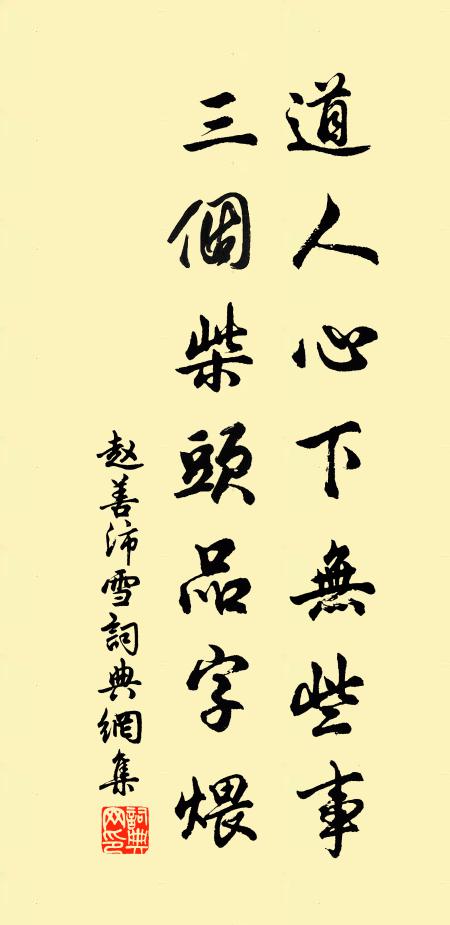 道人心下無些事
三個柴頭品字煨
赵善沛雪詞典網集
詞典網印